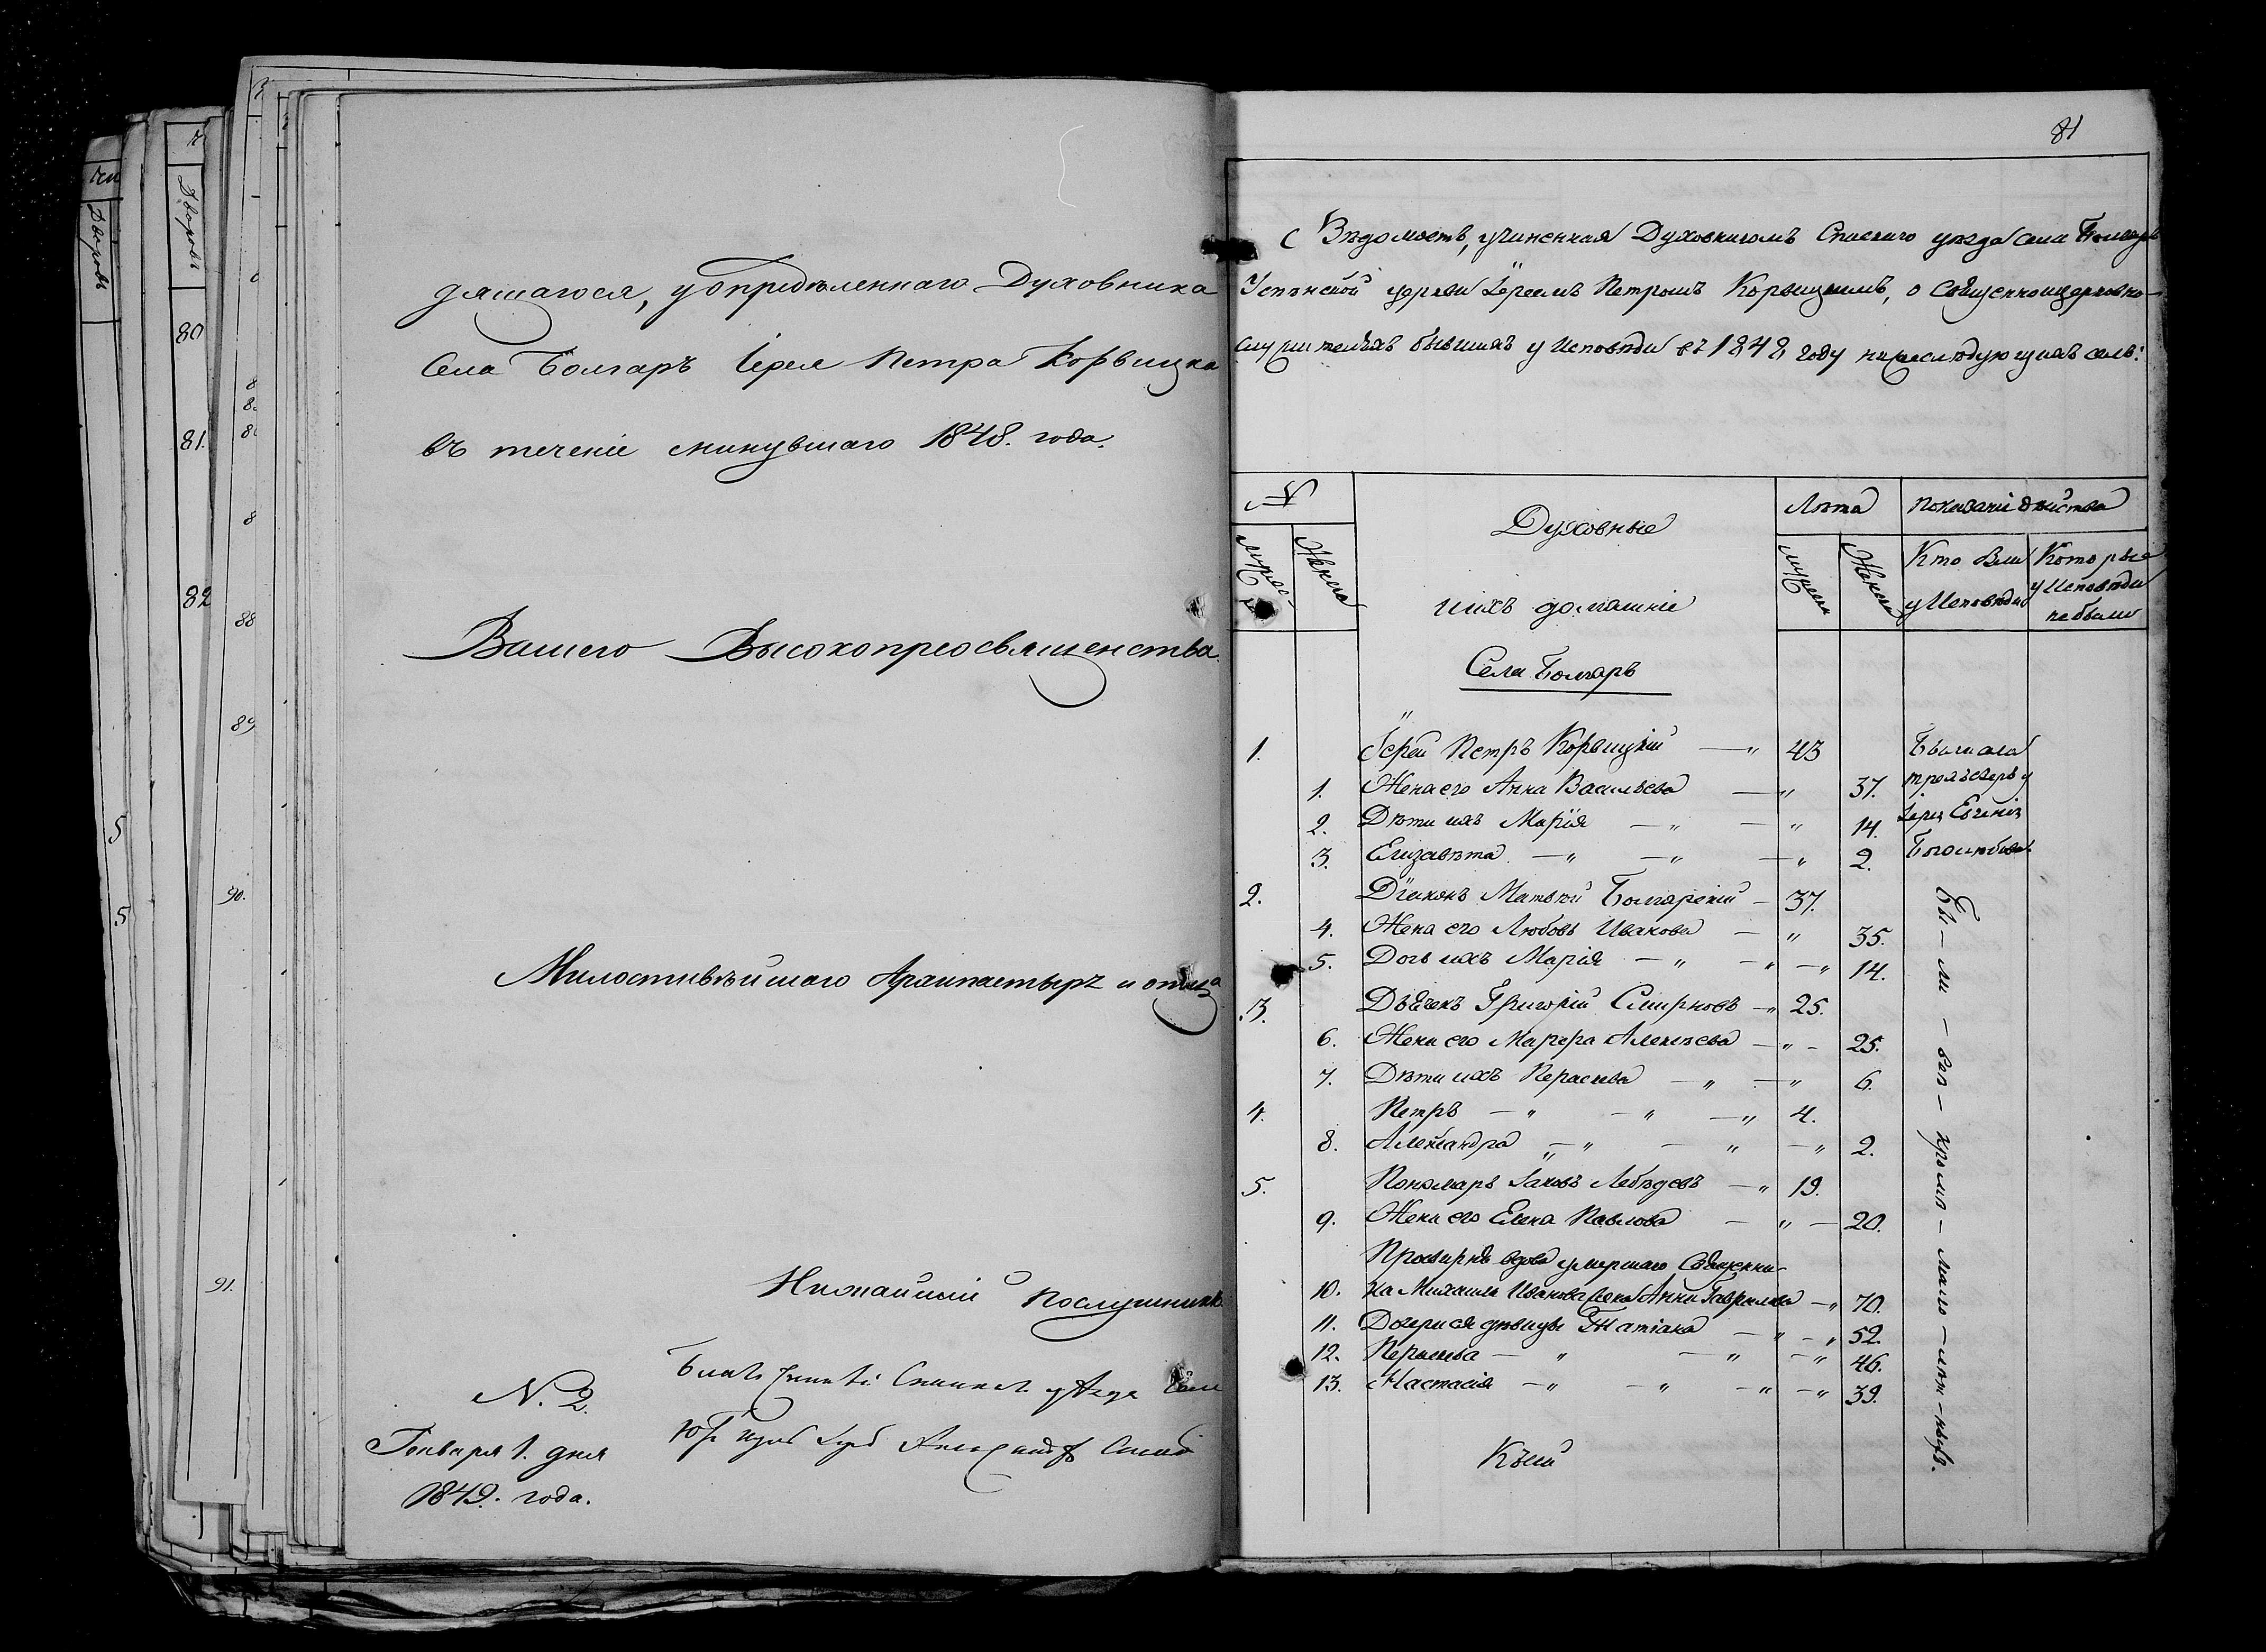 ДворовЪ
80
81.
82
88
89
90.
91.
5
5
дящагося, у опредѣленнаго Духовника
Села Болгаръ Іерея Петра Корвицка
въ теченіе минувшаго 1848. года.
Вашего Высокопреосвященства
Милостивѣйшаго Архипастыря и отца
Нижайшій послушникъ
N. 2.
Генваря 1. дня
1849. года.
81
Вѣдомость, учиненная Духовникомъ Спаскаго уѣзда села Болгаръ
Успенской церкви Іереемъ Петромъ Корвицкимъ, о Священноцерковно-
служителяхъ бывшихъ у Исповѣди въ 1848 году нижеслѣдующихъ селъ:
N
Духовные
Лѣта
Показаніе дѣйства
мужес-
Женска
мужеска
Женска
Кто были
у Исповѣди
Которые
у Исповѣди
не были
и ихъ домашніе
Села Болгаръ
1. Іерей Петръ Корвицкій 43 Была вся
1. Жена его Анна Васильева 37. треяъ у
2. Дѣти ихъ Марія 14. Іерея Евгенія
3. Елизавета 2. Боголюбова
2. Діаконъ Матвѣй Болгарскій 37.
4. Жена его Любовь Иванова 35.
5. Дочь ихъ Марія 14.
3. Дьячекъ Григорій Смирновъ 25.
6. Жена его Марфа Алексѣева 25.
7. Дѣти ихъ Параскева 6.
4. Петръ 4.
8. Александра 2.
5. Пономарь Іаковъ Лебедевъ 19.
9. Жена его Елена Павлова 20.
Просвирня вдова умершаго Священни-
10. ка Михаила Иванова жена Анна Гаврилова 70.
11. Дочери ея дѣвицы Татіана 52.
12. Параскева 46.
13. Настасія 39.
Бы-ли-все-кромѣ-мало-лѣт-ныхъ.
Къ сей